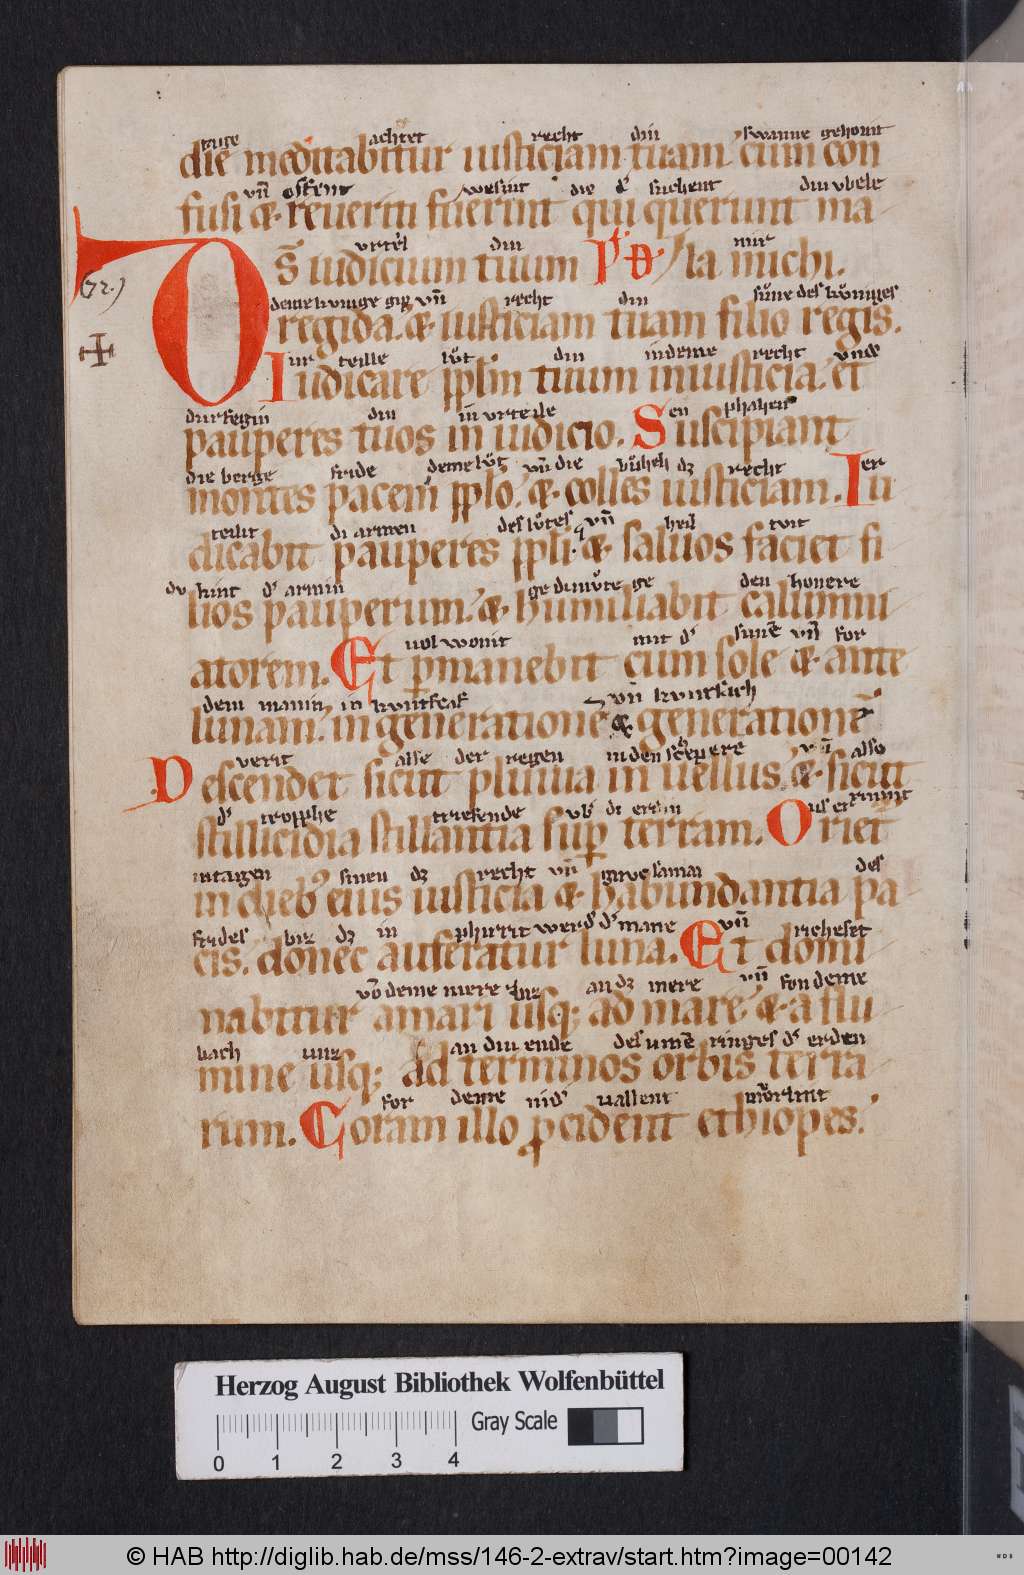 tage achtet recht din swanne gehonit
die meditabitur iusticiam tuam cum con
vñ wesint die d͛ suchent din vbele
fusi & reueriti fuerint qui querunt ma
vrteil din mir
D͞s iudicium tuum la michi.
72.)
deme kvnige gip vñ recht din sůne des kůniges
regi da. & iusticiam tuam filio regis.
ur teille lůt din in deme recht vnde
Iudicare pplm̄ tuum in iusticia. et
durfegin din in vrteile en phahen
pauperes tuos in iudicio. Suscipiant
die berge fride deme lůt vñ die recht er
montes pacem pplo. & colles iusticiam. Iu
teilit di armen des lůtes vñ heil tuit
dicabit pauperes ppli. & saluos faciet fi
kint d͛ armin ge dimůte ge den honere
lios pauperum. & humiliabit calumni
uol wonit mit d͛ sunē vñ for
atorem. Et ꝑmanebit cum sole & ante
dem manin in vñ
lunam. in generatione & generationē
verit alse der regen in den vñ also
Descendet sicut pluuia in uellus. & sicut
d͛ tropphe triefende vb͛ di erdin
stillicidia stillantia sup̱ terram. Oriet͛
in tagen sinen dz recht vñ des
in dieb⁹ eius iusticia & habundantia pa
frides biz dz in werd͛ d͛ mane vñ richeset
cis. donec auferatur luna. Et domi
vō deme mere biz an dz mere vñ fon deme
nabitur a mari usq; ad mare. & a flu
bach unz an diu ende des umē ringes d͛ erden
mine usq; ad terminos orbis terra
for deme nid͛ uallent
rum. Coram illo ꝓcident ethiopes.
Herzog August Bibliothek Wolfenbüttel
Gray Scale
0 1 2 3 4
© HAB http://diglib.hab.de/mss/146-2-extrav/start.htm?image=00142